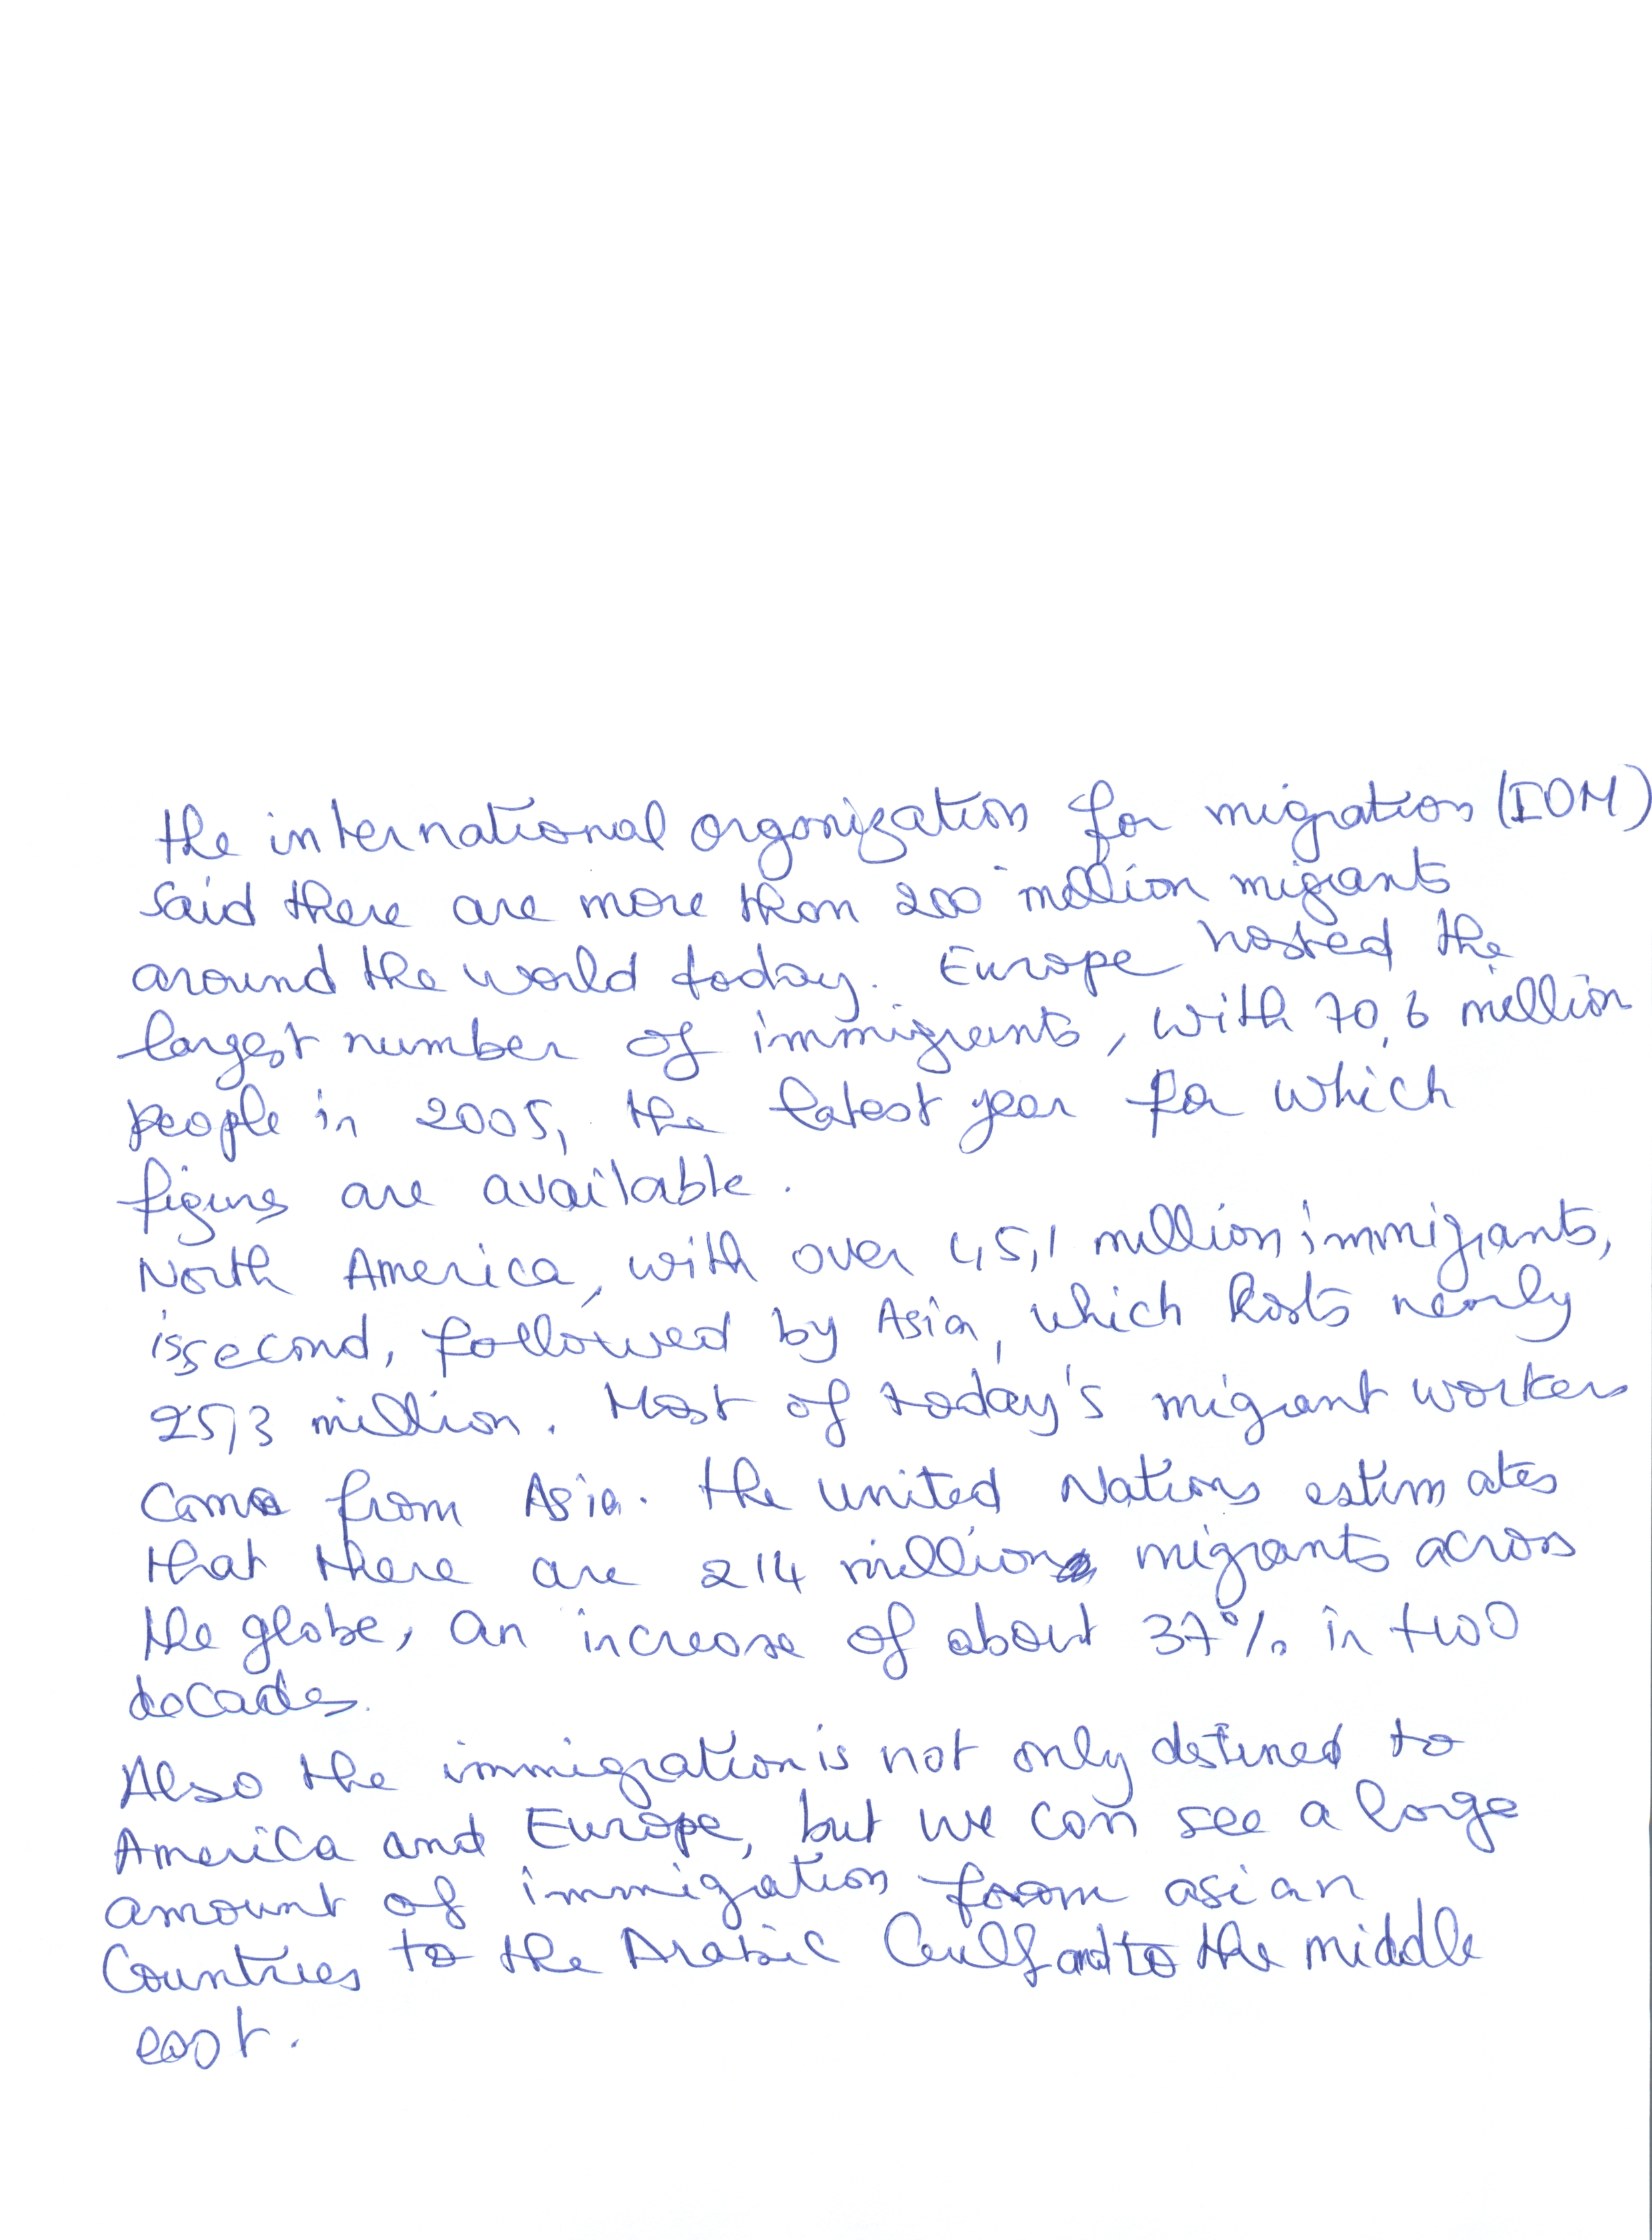 the international organization for migration (IOM)
said there are more than 200 million migrants
around the world today. Europe hosted the
largest number of immigrants, with 70,6 million
people in 2005, the latest year for which
figures are available.
North America, with over 45,1 million immigrants,
is second, followed by Asia, which hosts nearly
25,3 million. Most of today's migrant workers
come from Asia. the united Nations estimates
that there are 214 million migrants across
the globe, an increase of about 37% in two
decades.
Also the immigration is not only destined to
America and Europe, but we can see a large
amount of immigration from asian
Countries to the Arabic Gulf and to the middle
east.